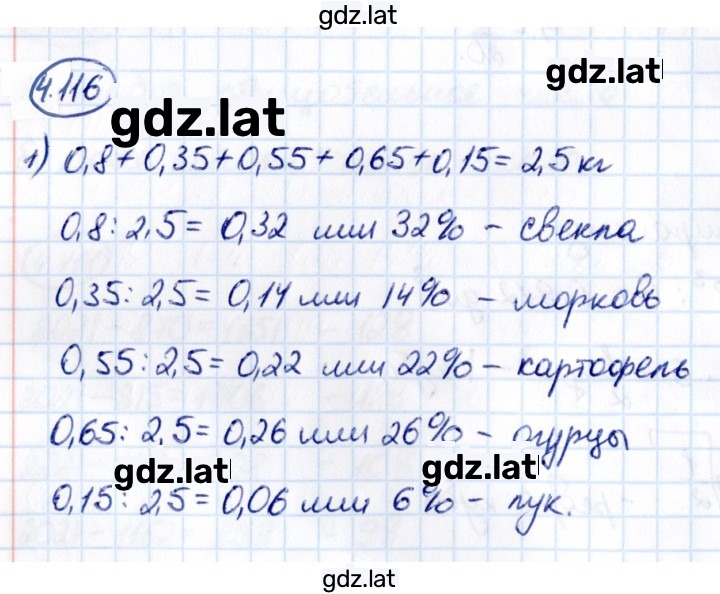 gdz.lat
gdz.lat
4.116
gdz.lat
1) 0,8 + 0,35 + 0,55 + 0,65 + 0,15 = 2,5 кг
0,8 : 2,5 = 0,32 или 32% - свекла
0,35 : 2,5 = 0,14 или 14% - морковь
0,55 : 2,5 = 0,22 или 22% - картофель
0,65 : 2,5 = 0,26 или 26% - огурцы
gdz.lat gdz.lat
0,15 : 2,5 = 0,06 или 6% - лук.
gdz.lat